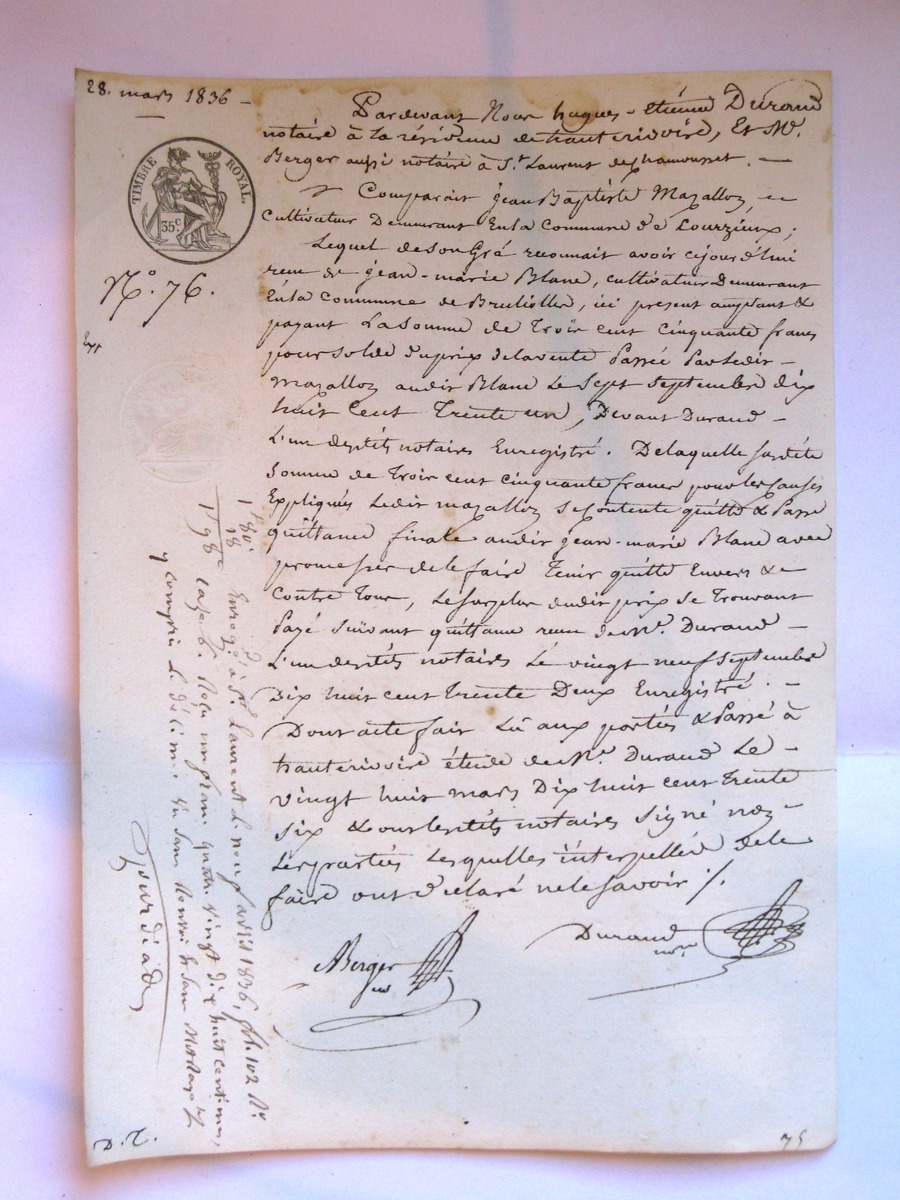 28. mars 1836 -
TIMBRE ROYAL.
35c
N.° 76.
Exp
Pardevant Nous hugues - etienne Durand
notaire à la résidence de hauterivoire, Et Me.
Berger aussi notaire à St. Laurent de chamousset. —
Comparait jean Baptiste Mazallon,
cultivateur Demeurant En la Commune de Lourzieux;
Lequel de son Gré reconnait avoir cejourd'hui
recu de jean-marie Blanc, cultivateur Demeurant
En la commune de Brullolles, ici present acceptant &
payant La somme de Trois cent cinquante francs
pour solde du prix de la vente Passée Par ledit -
mazallon audit Blanc Le sept septembre dix
huit Cent Trente un, Devant Durand -
L'un desdits notaires Enregistré. De laquelle susdite
somme de Trois cent cinquante francs pour les causes
Expliquées Ledit mazallon se contente quitte & Passe
quittance finale audit jean-marie Blanc avec
promesse de le faire Tenir quitte Envers &
Contre Tous, Le surplus dudit prix se Trouvant
Payé suivant quittance recue de Me. Durand -
L'un desdits notaires Le vingt neuf septembre
Dix huit cent trente Deux Enregistré. -
Dont acte fait Lû aux parties & Passé à
hauterivoire étude de Me. Durand Le -
vingt huit mars Dix huit cent Trente
six & ont lesdits notaires signé non
Les parties Lesquelles interpellées de le
faire ont déclaré ne le savoir ./.
Berger
Durand
Enregé. à St. Laurent le neuf avril 1836, fol. 102
Reçu un franc quatre vingt dix huit centimes
y compris le décime
1f 80c
18
1f 98c
D. T.
75